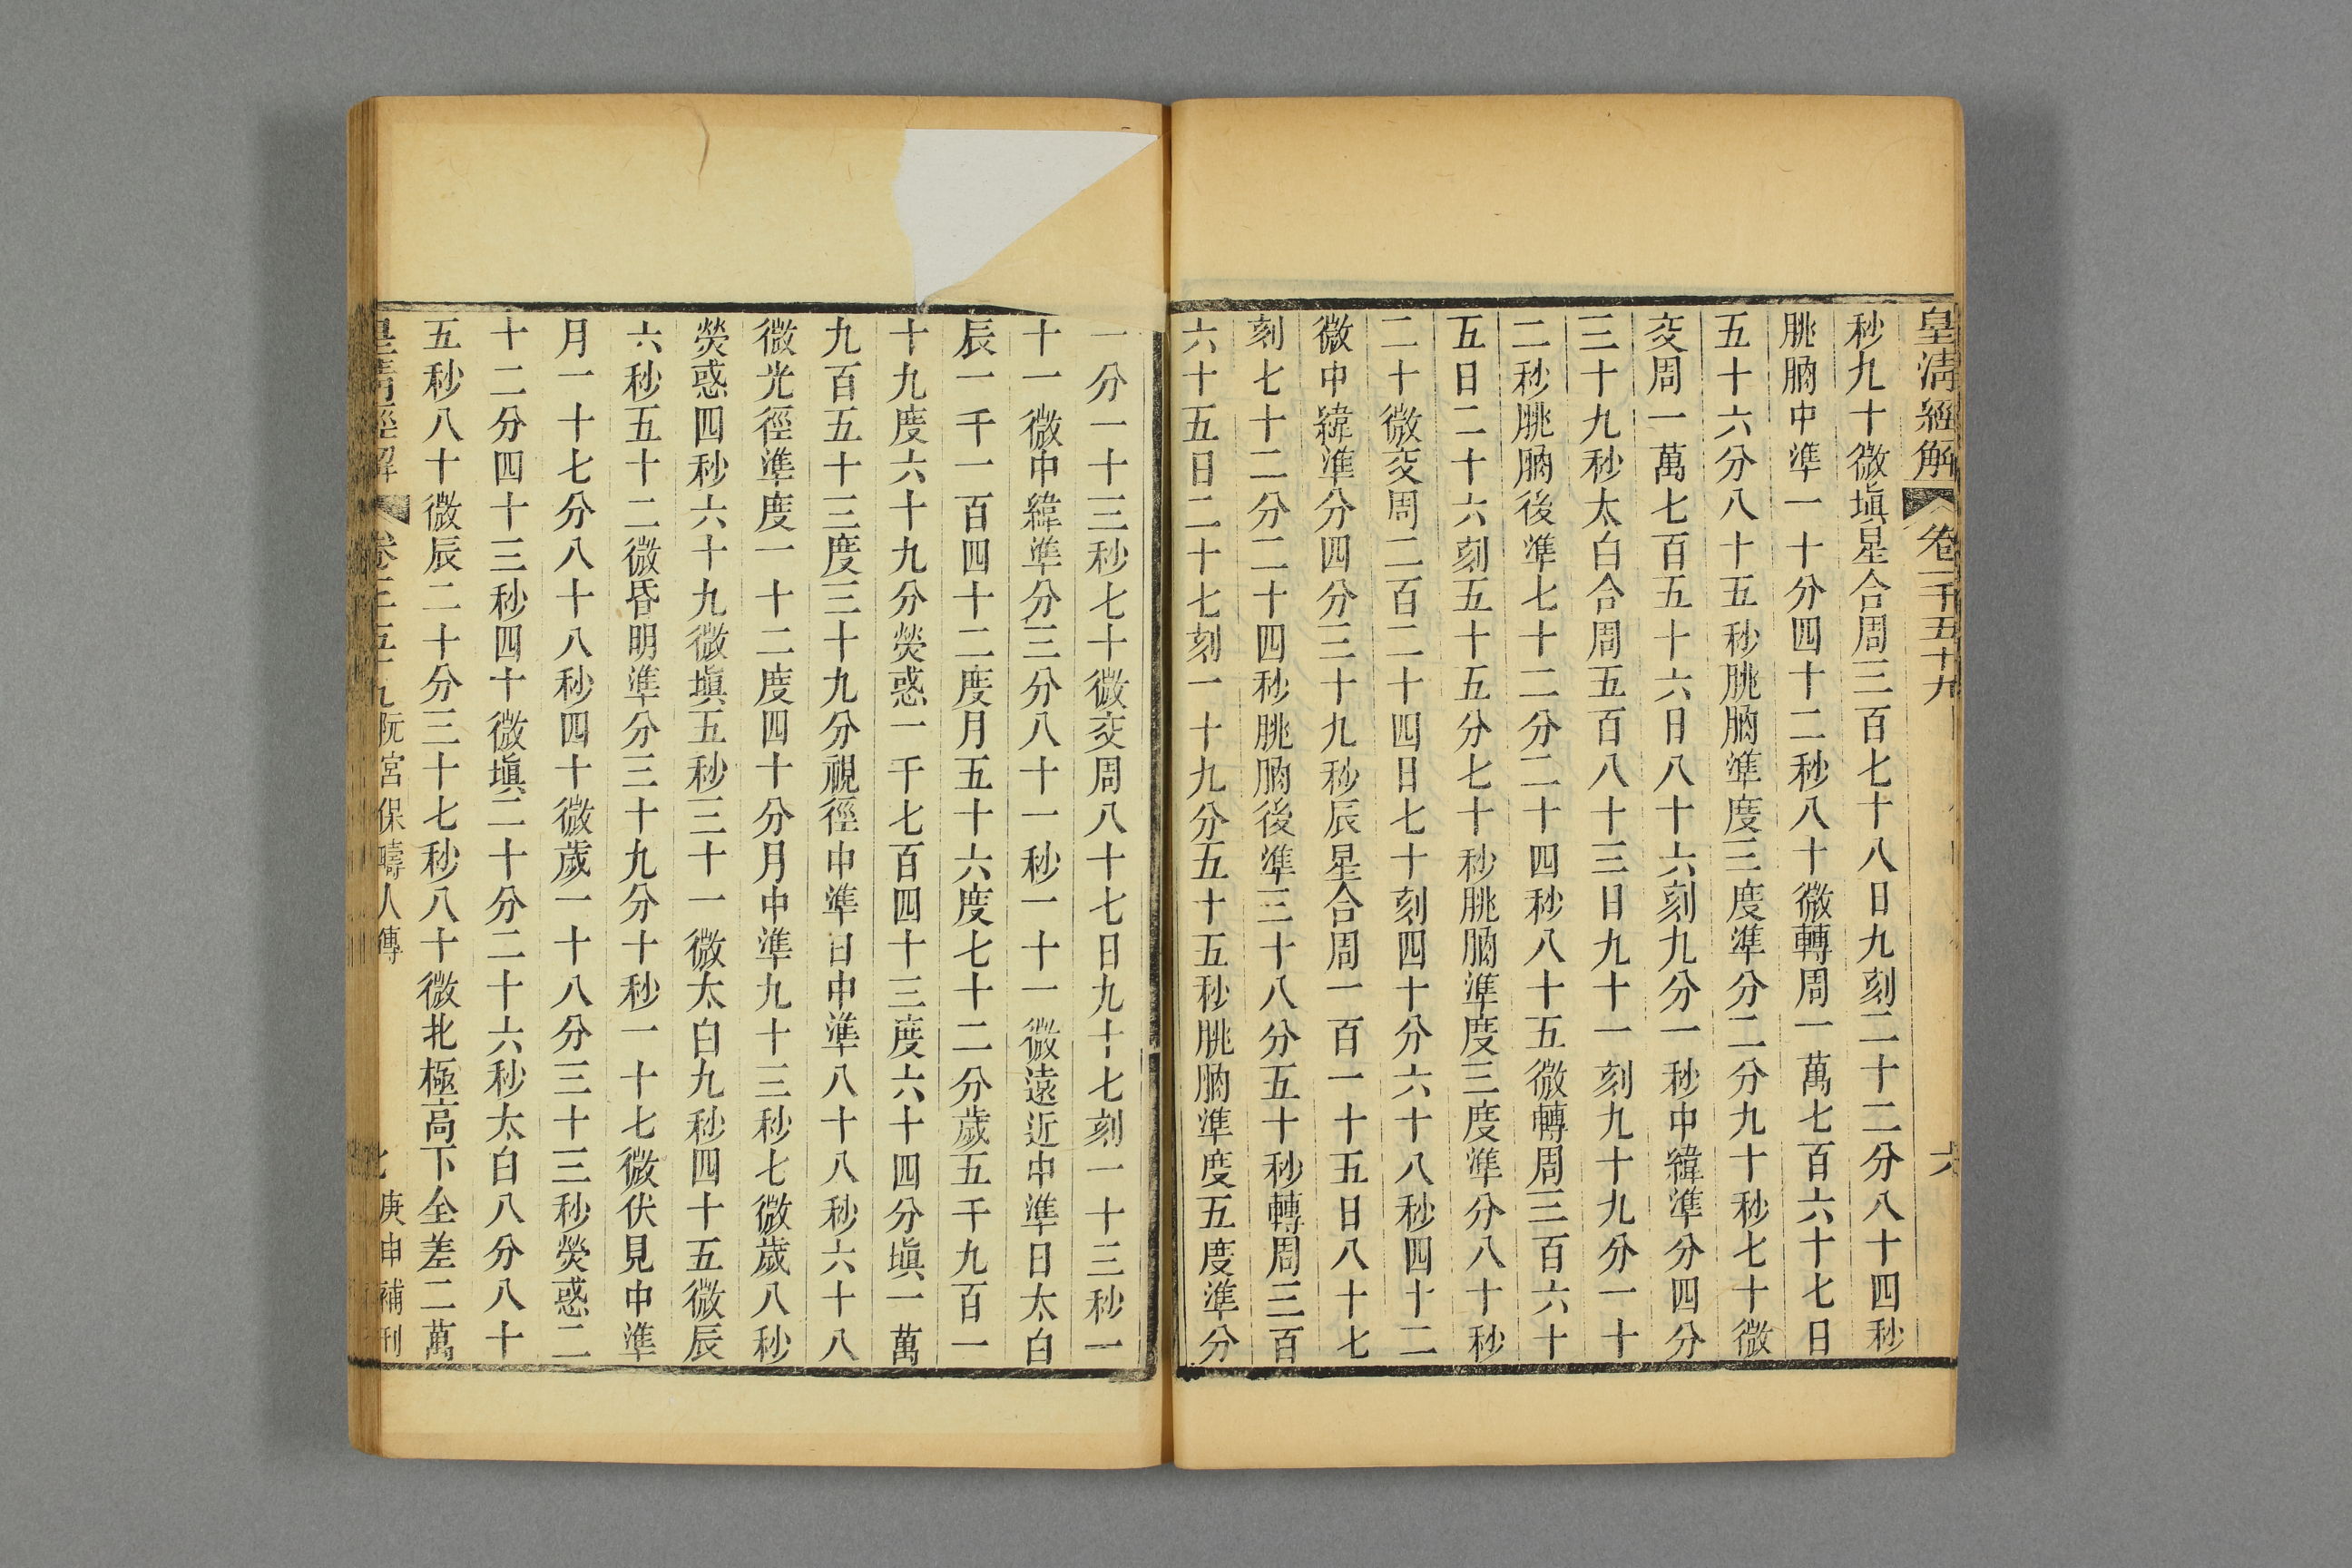 皇淸經解 卷一千五十九 六
秒九十微塡星合周三百七十八日九刻二十二分八十四秒
朓朒中準一十分四十二秒八十微轉周一萬七百六十七日
五十六分八十五秒朓朒準度三度準分二分九十秒七十微
交周一萬七百五十六日八十六刻九分一秒中緯準分四分
三十九秒太白合周五百八十三日九十一刻九十九分一十
二秒朓朒後準七十二分二十四秒八十五微轉周三百六十
五日二十六刻五十五分七十秒朓朒準度三度準分八十秒
二十微交周二百二十四日七十刻四十分六十八秒四十二
微中緯準分四分三十九秒辰星合周一百一十五日八十七
刻七十二分二十四秒朓朒後準三十八分五十秒轉周三百
六十五日二十七刻一十九分五十五秒朓朒準度五度準分
一分一十三秒七十微交周八十七日九十七刻一十三秒一
十一微中緯準分三分八十一秒一十一微遠近中準日太白
辰一千一百四十二度月五十六度七十二分歲五千九百一
十九度六十九分熒惑一千七百四十三度六十四分塡一萬
九百五十三度三十九分視徑中準日中準八十八秒六十八
微光徑準度一十二度四十分月中準九十三秒七微歲八秒
熒惑四秒六十九微塡五秒三十一微太白九秒四十五微辰
六秒五十二微昏明準分三十九分十秒一十七微伏見中準
月一十七分八十八秒四十微歲一十八分三十三秒熒惑二
十二分四十三秒四十微塡二十分二十六秒太白八分八十
五秒八十微辰二十分三十七秒八十微北極高下全差二萬
皇淸經解 卷千五十九 阮宮保疇人傳 七 庚申補刊